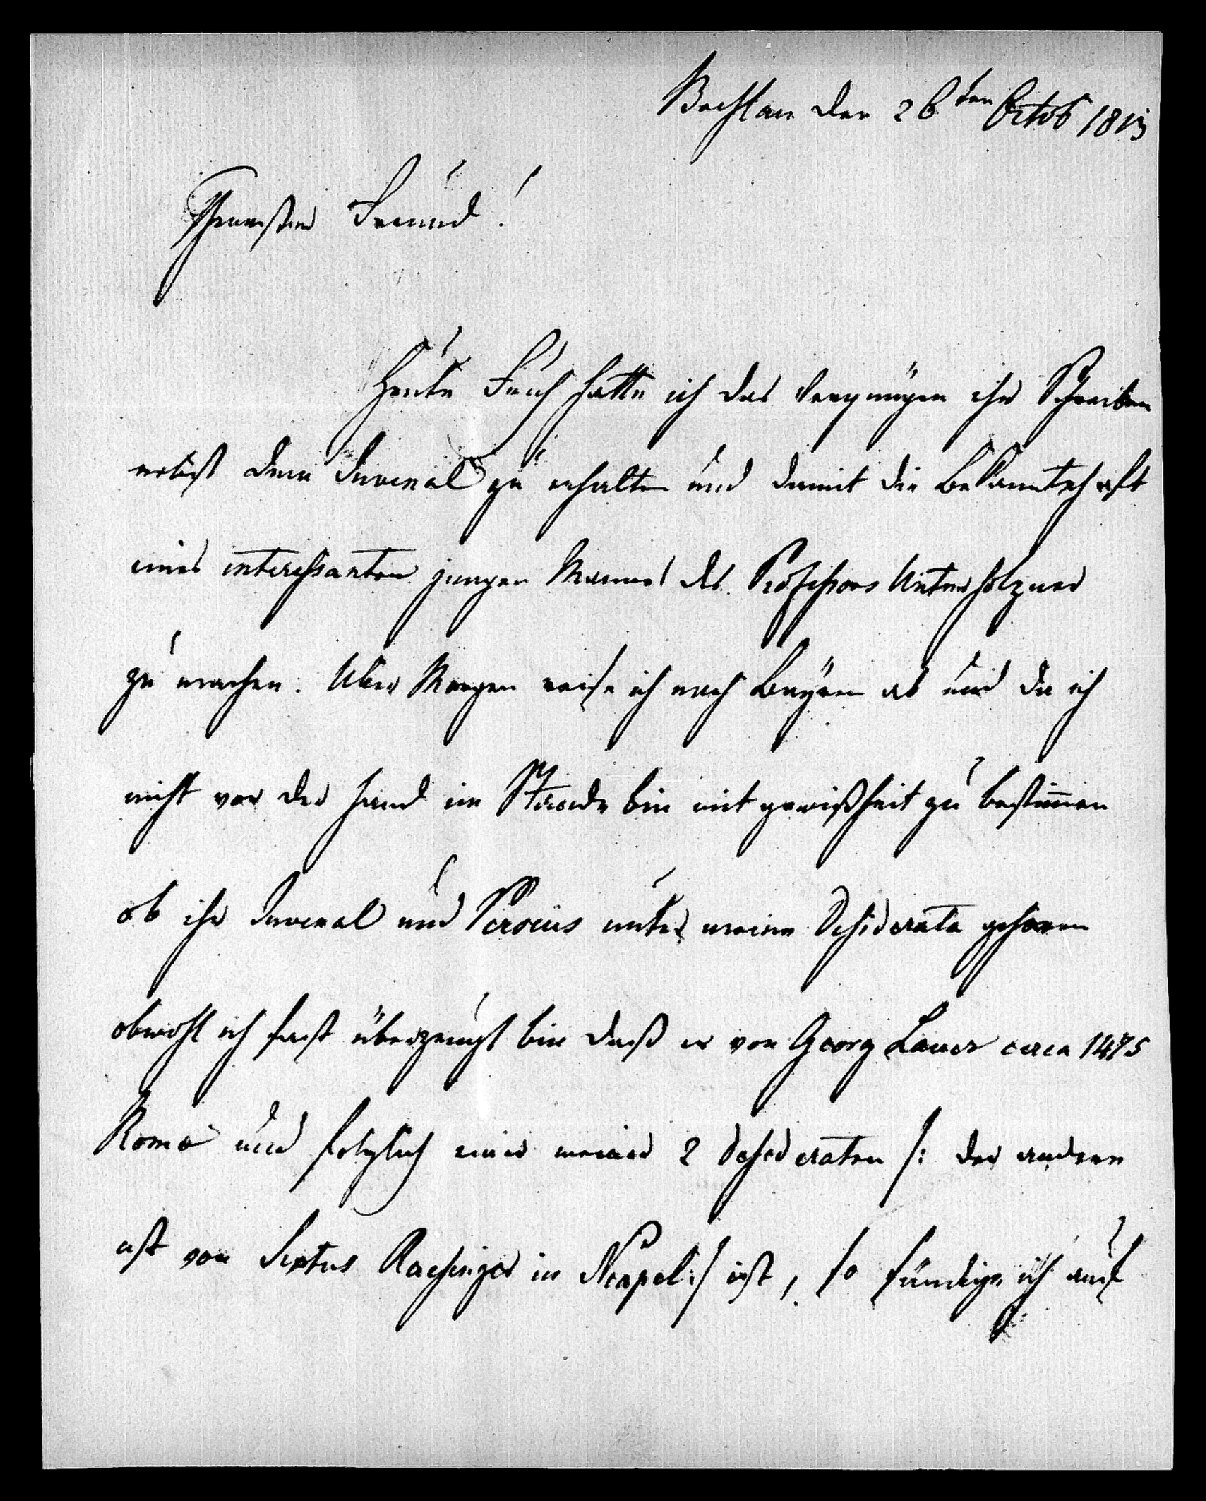 Breslau den 26ten Octob 1813
Theuerster Freund!
Heute Früh hatte ich das Vergnügen ihr Schreiben
nebst dem Juvenal zu erhalten und damit die Bekanntschaft
eines interessanten jungen Mannes des Professors Unterholzner
zu machen. Über Morgen reise ich nach Bayern ab und da ich
nicht vor der Hand im Stande bin mit gewißheit zu bestimmen
ob ihr Juvenal und Persius unter meine Desiderata gehören
obwohl ich fast überzeugt bin daß er von Georg Lauer circa 1475
Roma und folglich einer meiner 2 Desideraten /: der andere
ist von Sixtus Riessinger in Neapel :/ ist, so kündige ich auf